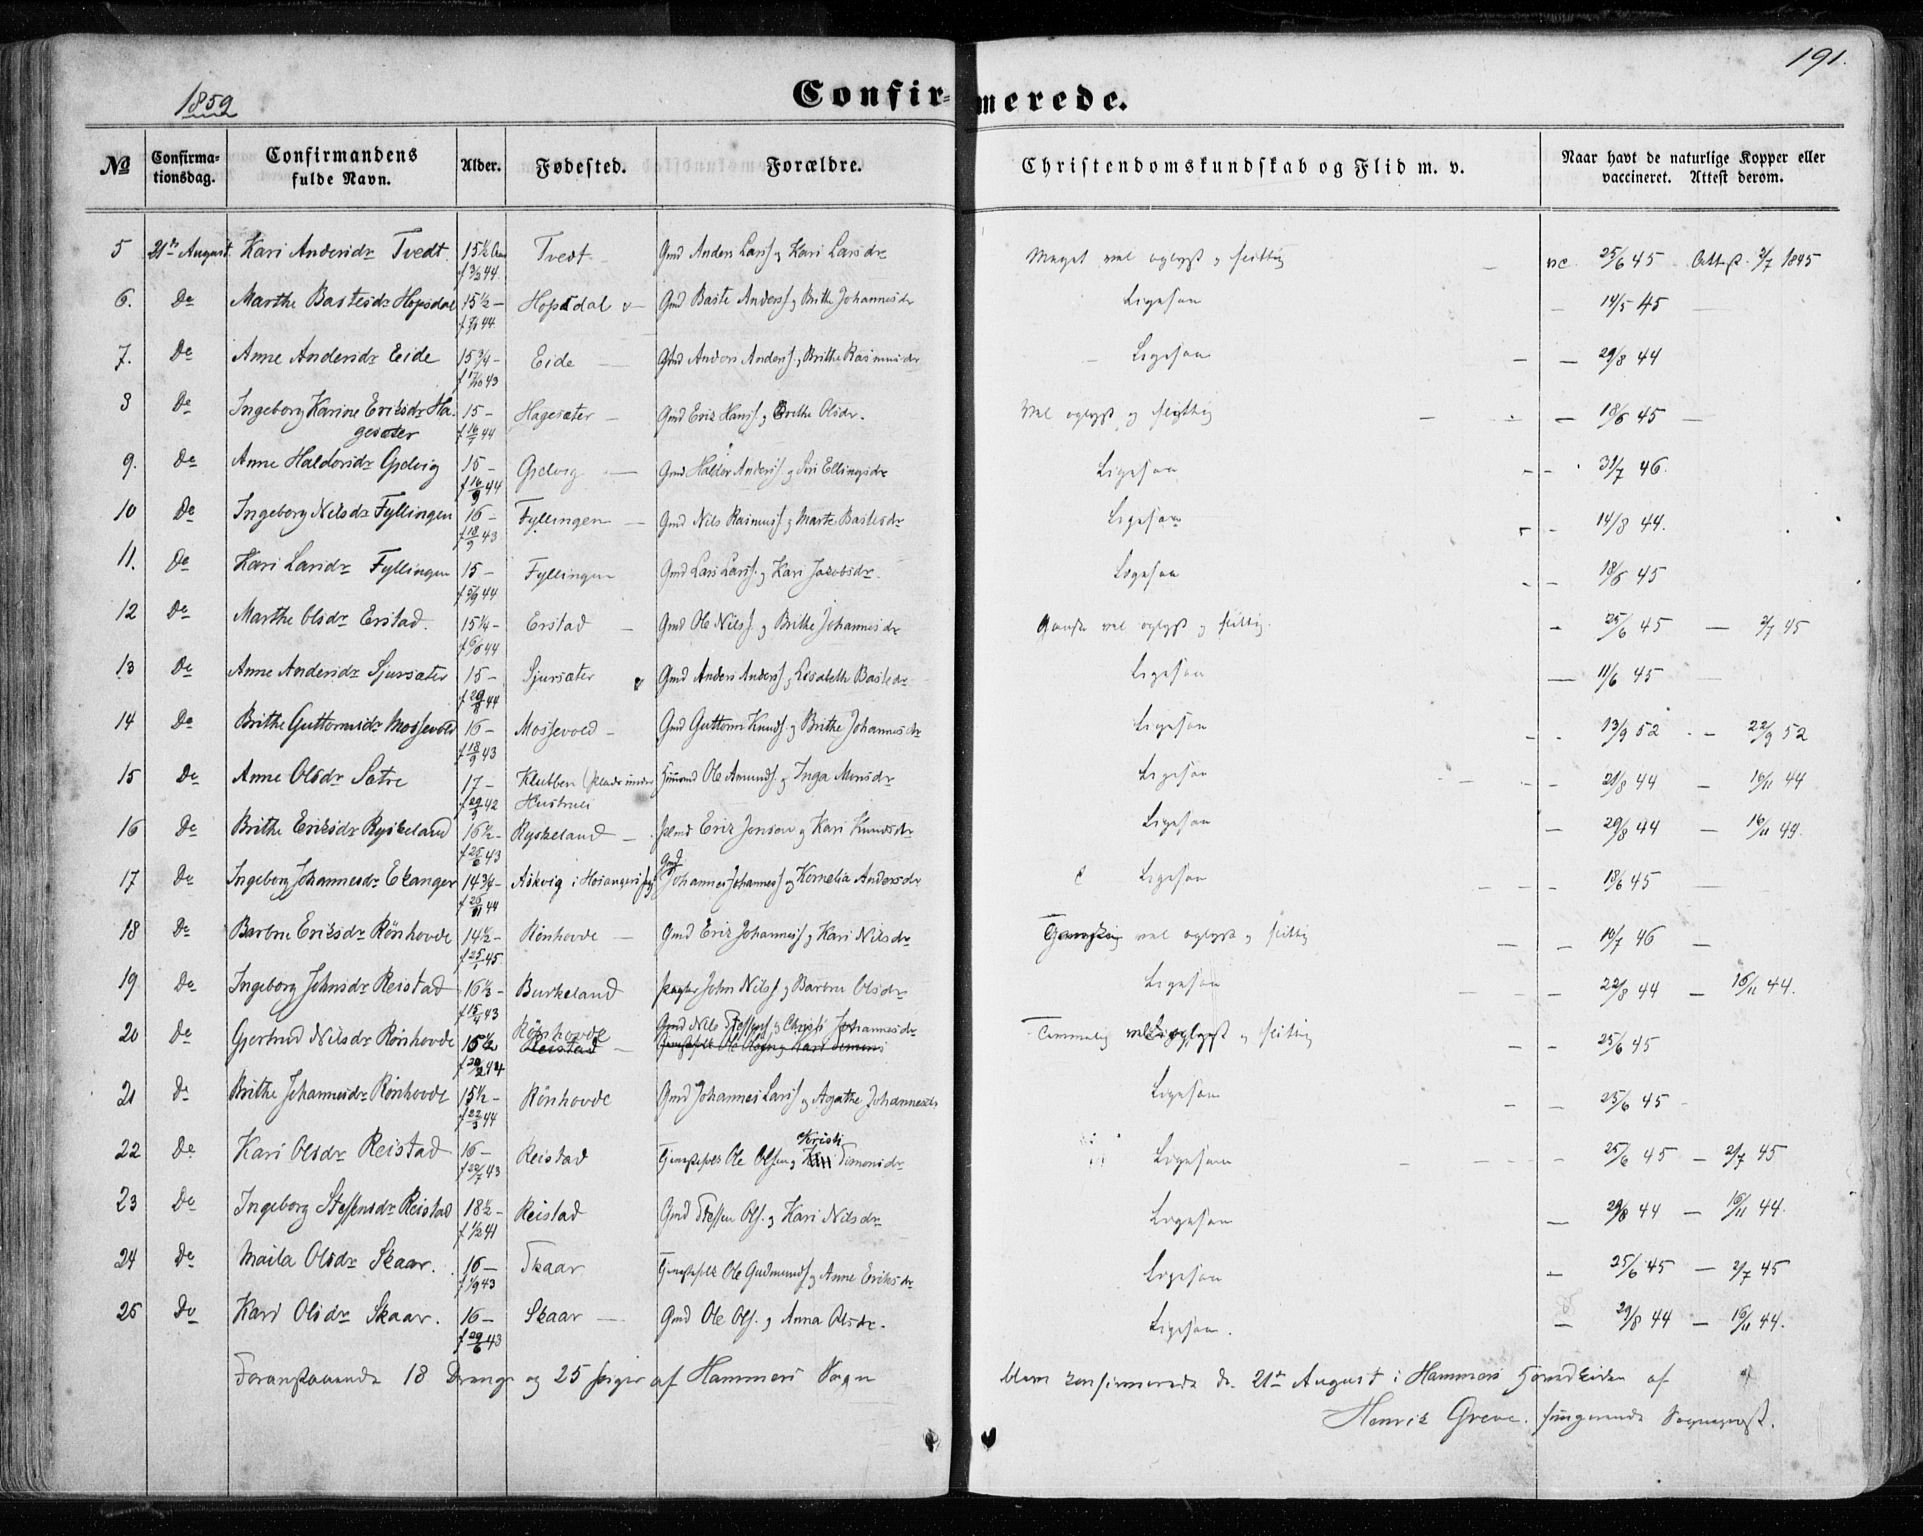 191.
1859
Confirmerede.
No Confirmationsdag. Confirmandens fulde Navn. Alder. Fødested. Forældre. Christendomskundskab og Flid m. v. Naar havt de naturlige Kopper eller vaccineret. Attest derom.
5 21de August. Kari Andersdr Tvedt 15½ Tvedt Gmd Anders Larss. og Kari Larsdr Meget vel oplyst og flittig vc. 25/6 45 Attest 2/7 1845
6. Do Marthe Bastesdr Hopsdal 15½ – Hopsdal Gmd Baste Anderss. og Brithe Johannesdr Ligesaa – 14/5 45
7. Do Anne Andersdr Eide 15¾ – f 17/10 43 Eide Gmd Anders Anderss. og Brithe Rasmusdr Ligesaa – 29/8 44
8 Do Ingeborg Karine Eriksdr Hagesæter 15 – f 16/7 44 Hagesæter Gmd Erik Hanss. og Brithe Olsdr. Vel oplyst og flittig – 18/6 45
9. Do Anne Haldorsdr Gjelvig 15 – f 16/9 44 Gjelvig Gmd Haldor Anderss. og Siri Ellingsdr Ligesaa – 31/7 46.
10 Do Ingeborg Nilsdr Fyllingen 16 – f 18/9 43 Fyllingen Gmd Nils Rasmuss. og Marte Bastesdr Ligesaa – 14/8 44.
11. Do Kari Larsdr Fyllingen 15 – Fyllingen Gmd Lars Larss. og Kari Jacobsdr. Ligesaa – 18/6 45
12 Do Marthe Olsdr Erstad. 15¼ – Erstad Gmd Ole Nilss. og Brithe Johannesdr Ganske vel oplyst og flittig. – 25/6 45 – 2/7 45
13 Do Anne Andersdr Sjursæter 15 – Sjursæter Gmd Anders Anderss. og Lisabeth Bastesdr Ligesaa – 11/6 45
14 Do Brithe Guttormsdr Mossevold 16 – f 18/9 43 Mossevold Gmd Guttorm Knuds. og Brithe Johannesdr Ligesaa – 13/9 52 – 22/9 52
15 Do Anne Olsdr Sætre 17 – Klubben Ole Amunds. og Inga Monsdr Ligesaa – 21/8 44 – 16/11 44
16 Do Brithe Eriksdr Ryskeland 16½ – f 25/6 43 Ryskeland Erik Jonson og Kari Knudsdr Ligesaa – 29/8 44 – 16/11 44.
17 Do Ingeborg Johannesdr Ekanger 14¾ – f 26/11 44 Askvig i Hosangers Gmd Johannes Johanness. og Kornelia Andersdr Ligesaa – 18/6 45
18 Do Barbru Eriksdr Rönhovde 14½ – f 25/1 45. Rönhovde Gmd Erik Johanness. og Kari Nilsdr vel oplyst og flittig – 10/7 46
19 Do Ingeborg Johnsdr Reistad 16⅓ – f 15/4 43 Burkeland John Nilss. og Barbru Olsdr Ligesaa 22/8 44 – 16/11 44.
20 Do Gjertrud Nilsdr Rönhovde 15½ f 20/2 44 Rönhovde Gmd Nils Steffens. og Christi Johannesdr Temmelig vel oplyst og flittig – 25/6 45
21 Do Brithe Johannesdr Rönhovde 15½ – f 22/3 44 Rönhovde Gmd Johannes Larss. og Agathe Johannesdr Ligesaa – 25/6 45
22 Do Kari Olsdr Reistad 16 – f 20/7 43 Reistad Ole Olsen og Kristi Simonsdr Ligesaa 25/6 45 – 2/7 45
23 Do Ingeborg Steffensdr Reistad 18½ – f 1/2 41 Reistad Gmd Steffen Ols. og Kari Nilsdr Ligesaa – 29/8 44 – 16/11 44.
24 Do Maila Olsdr Skaar. 16 – f 1/9 43 Skaar Ole Gudmunds. og Anne Eriksdr Ligesaa – 25/6 45 – 2/7 45
25 Do Kari Olsdr Skaar. 16 – f 29/6 43 Skaar Gmd Ole Ols. og Anna Olsdr. Ligesaa. – 29/8 44 – 16/11 44.
Foranstaaende 18 Drenge og 25 Piger af Hammers Sogn bleve konfirmerede d. 21de August i Hammers Hovedkirke af
Henrik Greve. fungerende Sognepræst.